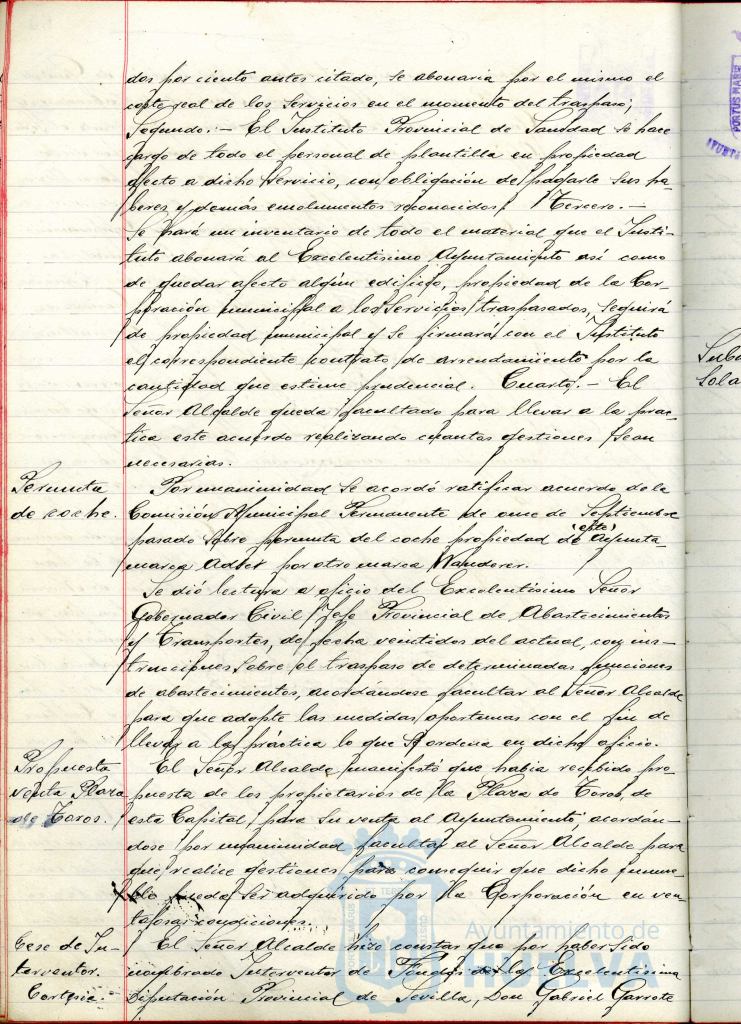 dos por ciento antes citado, se abonaria por el mismo el
coste real de los Servicios en el momento del traspaso;
Segundo.- El Instituto Provincial de Sanidad se hace
cargo de todo el personal de plantilla en propiedad
afecto a dicho Servicio, con obligación de pagarle sus ha-
beres y demás emolumentos reconocidos; Tercero.-
Se hará un inventario de todo el material que el Insti-
tuto abonará al Excelentisimo Ayuntamiento así como
de quedar afecto algún edificio, propiedad de la Cor-
poración municipal a los Servicios traspasados, seguirá
de propiedad municipal y se firmará con el Instituto
el correspondiente contrato de arrendamiento por la
cantidad que estime prudencial. Cuarto.- El
Señor Alcalde queda facultado para llevar a la prac-
tica este acuerdo realizando cuantas gestiones sean
necesarias.
Permuta
de coche.
Por unanimidad se acordó ratificar acuerdo de la
Comisión Municipal Permanente de once de Septiembre
pasado sobre permuta del coche propiedad de (este) Ayunta-
marca por otro marca Wanderer.
Se dió lectura a oficio del Excelentísimo Señor
Gobernador Civil Jefe Provincial de Abastecimientos
y Transportes, de fecha veintidos del actual, con ins-
trucciones sobre el traspaso de determinadas funciones
de abastecimientos, acordándose facultar al Señor Alcalde
para que adopte las medidas oportunas con el fin de
llevar a la práctica lo que se ordena en dicho oficio.
Propuesta
venta Plaza
de Toros.
El Señor Alcalde manifestó que habia recibido pro-
puesta de los propietarios de la Plaza de Toros, de
esta Capital, para su venta al Ayuntamiento acordán-
dose por unanimidad facultar al Señor Alcalde para
que realice gestiones para conseguir que dicho inmue-
ble pueda ser adquirido por la Corporación en ven-
tajosas condiciones.
Cese de In-
terventor.
Cortesia.
El Señor Alcalde hizo constar que por haber sido
nombrado Interventor de Fondos de la Excelentísima
Diputación Provincial de Sevilla, Don Gabriel Garrote
Ayuntamiento de
HUELVA